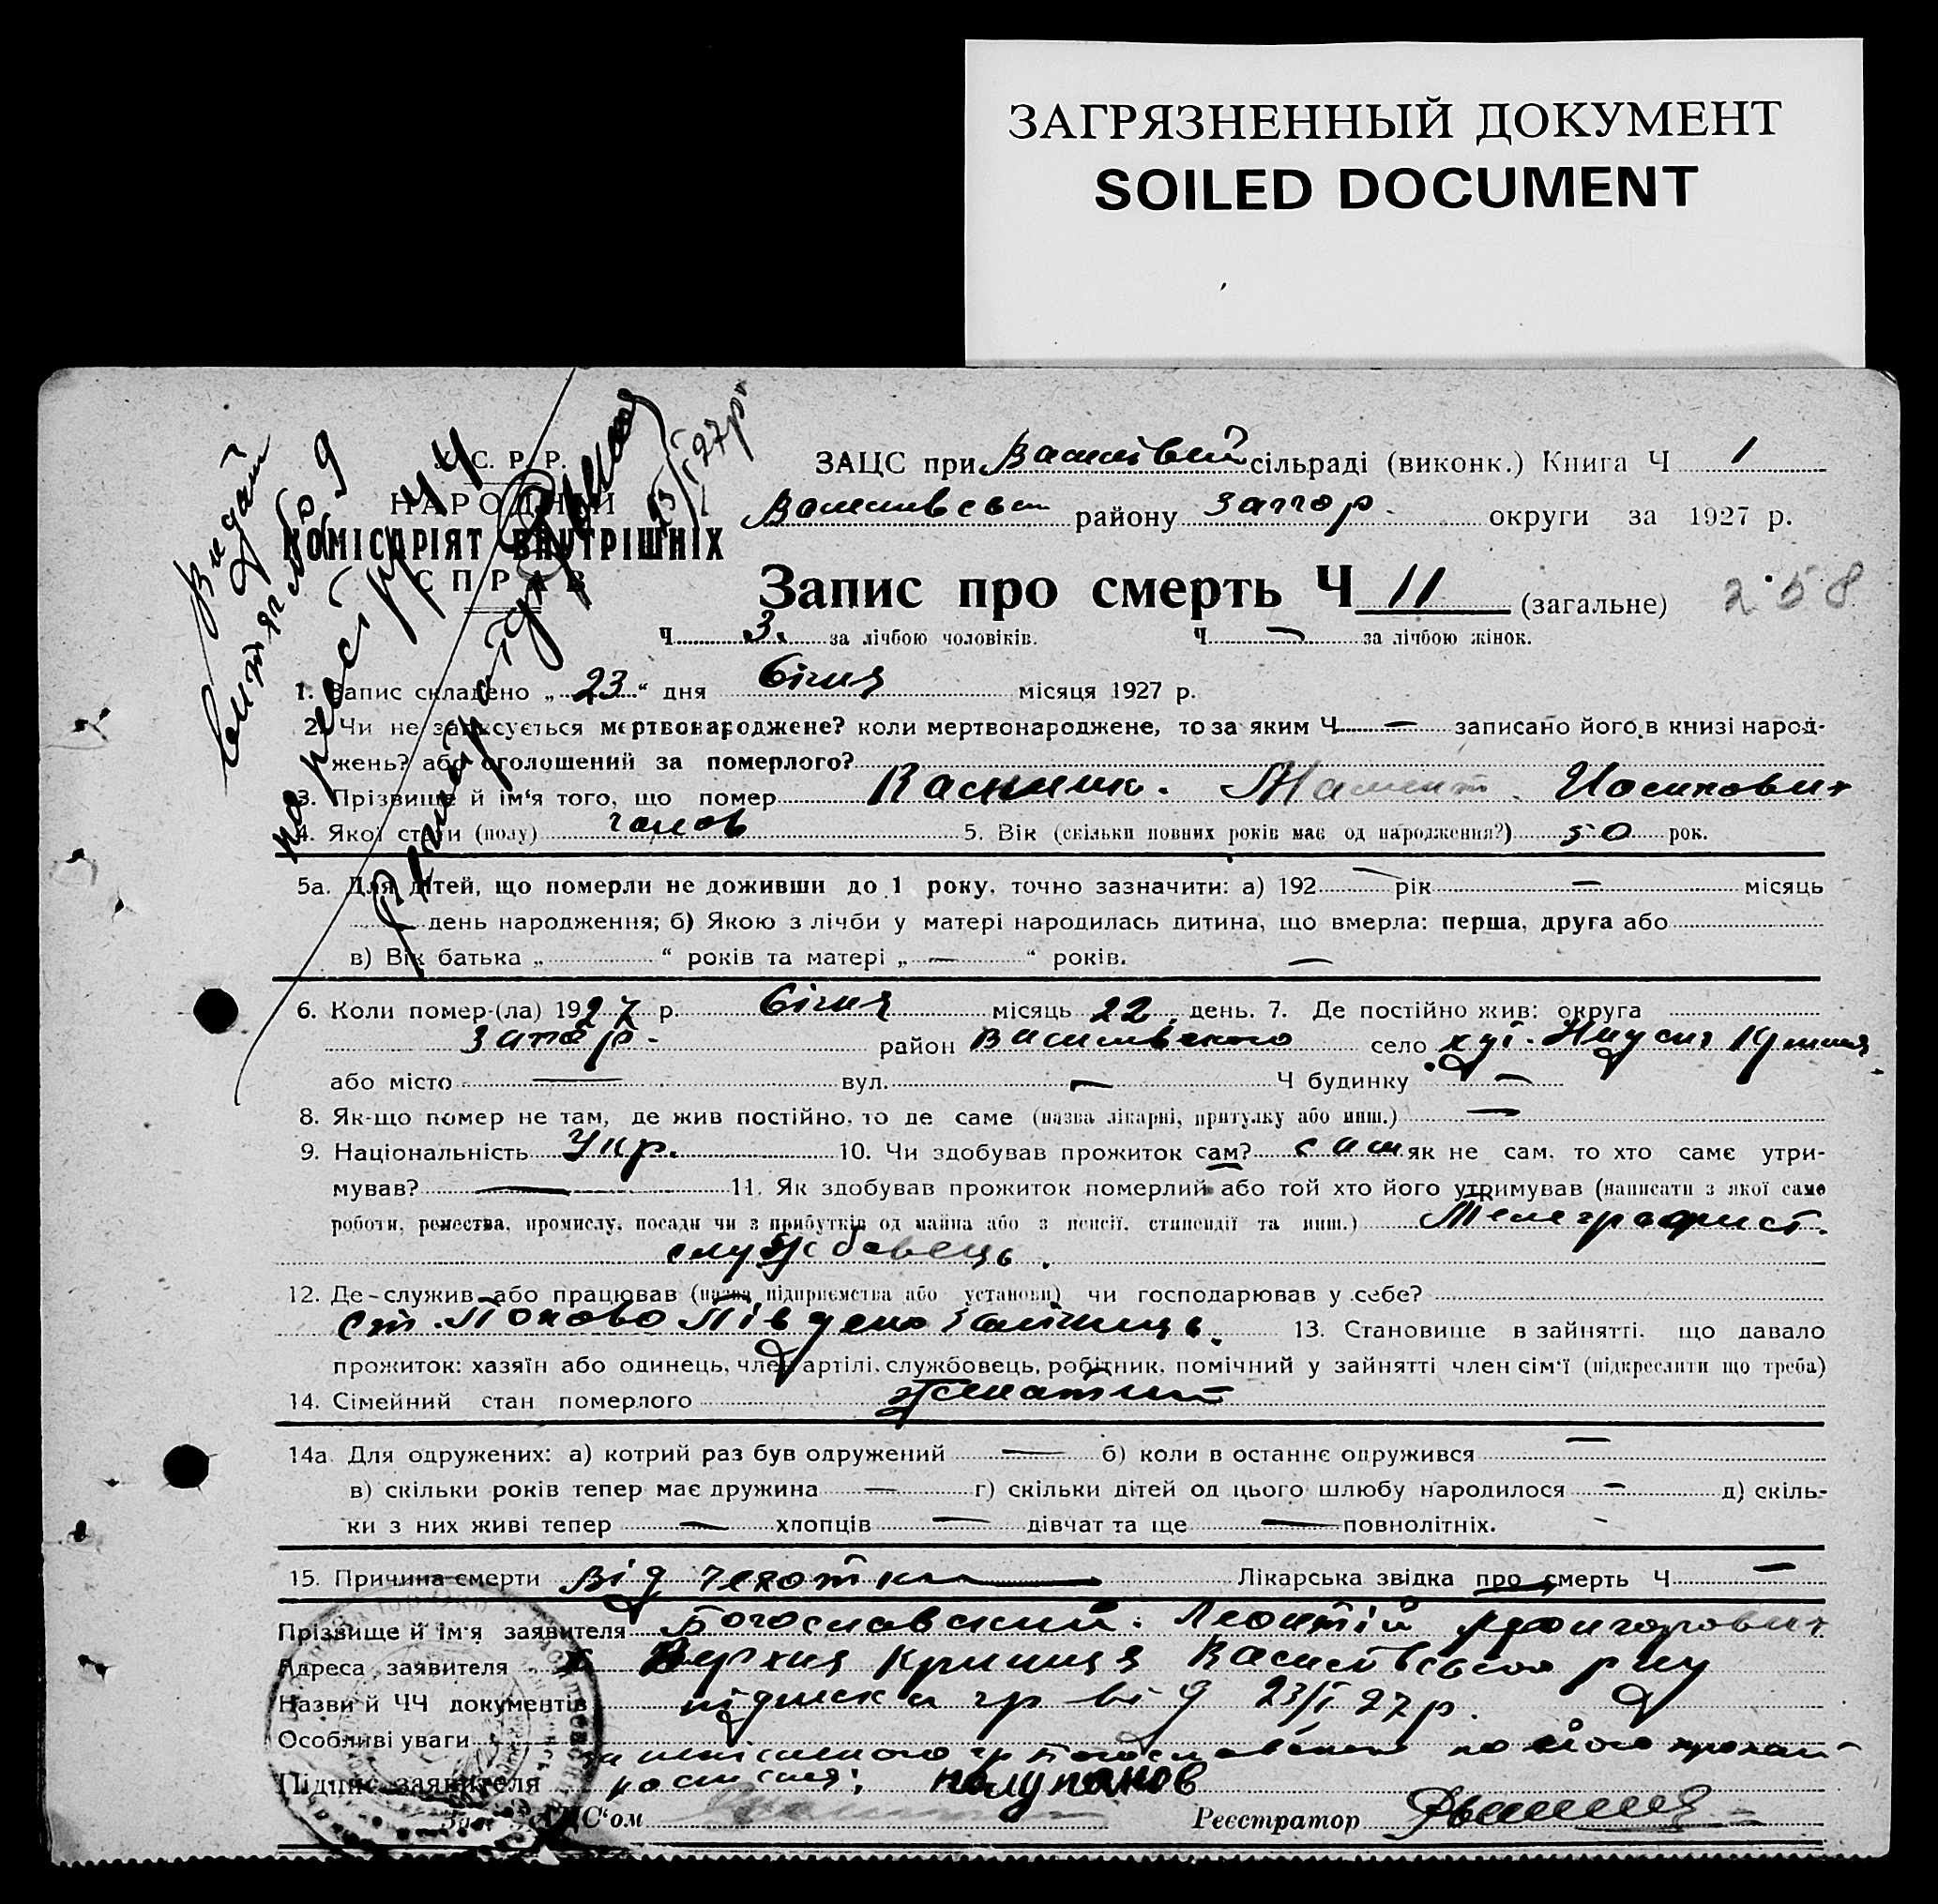 ЗАГРЯЗНЕННЫЙ ДОКУМЕНТ
SOILED DOCUMENT
У. С. Р. Р.
НАРОДНИЙ
КОМІСАРІЯТ ВНУТРІШНІХ
СПРАВ
Видай
витяг № 9
23/І 27р
ЗАЦС при сільраді (виконк.) Книга Ч 1
району Запор. округи за 1927 р.
Запис про смерть Ч 11 (загальне) 258
Ч 3. за лічбою чоловіків. Ч — за лічбою жінок.
1. Запис складено „ 23 “ дня Січня місяця 1927 р.
2. Чи не записується мертвонароджене? коли мертвонароджене, то за яким Ч — записано його в книзі народ-
жень? або оголошений за померлого?
3. Прізвище й ім‘я того, що помер Иосипович
4. Якої стати (полу) чолов 5. Вік (скільки повних років має од народження?) 50 рок.
5а. Для дітей, що померли не доживши до 1 року, точно зазначити: а) 192 — рік — місяць
— день народження; б) Якою з лічби у матері народилась дитина, що вмерла: перша, друга або
в) Вік батька „ “ років та матері „ — “ років. —
6. Коли помер-(ла) 1927 р. Січня місяць 22 день. 7. Де постійно жив: округа
Запор. район Василівського село хут.
або місто — вул. — Ч будинку —
8. Як-що помер не там, де жив постійно, то де саме (назва лікарні, притулку або инш.) —
9. Національність Укр. 10. Чи здобував прожиток сам? сам як не сам, то хто саме утри-
мував? — 11. Як здобував прожиток померлий або той хто його утримував (написати з якої саме
роботи, ремества, промислу, посади чи з прибутків од майна або з пенсії, стипендії та инш.) Телеграфист.
службовець.
12. Де-служив або працював (назва підприємства або установи) чи господарював у себе?
ст. Попово Південо залізниць. 13. Становище в зайнятті, що давало
прожиток: хазяїн або одинець, член артілі, службовець, робітник, помічний у зайнятті член сім‘ї (підкреслити що треба)
14. Сімейний стан померлого Женатий
14а. Для одружених: а) котрий раз був одружений — б) коли в останнє одружився —
в) скільки років тепер має дружина — г) скільки дітей од цього шлюбу народилося — д) скіль-
ки з них живі тепер — хлопців — дівчат та ще — повнолітніх.
15. Причина смерти Від чехотки Лікарська звідка про смерть Ч —
Прізвище й ім‘я заявителя Богославский. Леонтій
Адреса заявителя х Верхня Криниця Василівського р ну
Назви й ЧЧ документів підписка гр від 23/І 27 р.
Особливі уваги
Підпис заявителя Полупанов
Зав. ЗАЦС‘ом Реєстратор